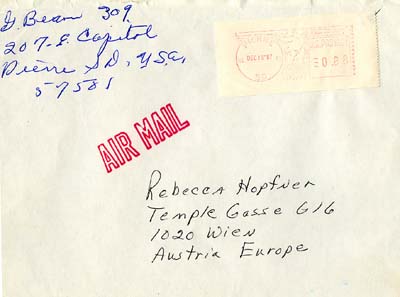 G. Beam 309
207-E. Capitol
Pierre SD, U.S.A.
57581
DEC 10 '87
0.88
AIR MAIL
Rebecca Hopfner
Temple Gasse 6/6
1020 Wien
Austria Europe